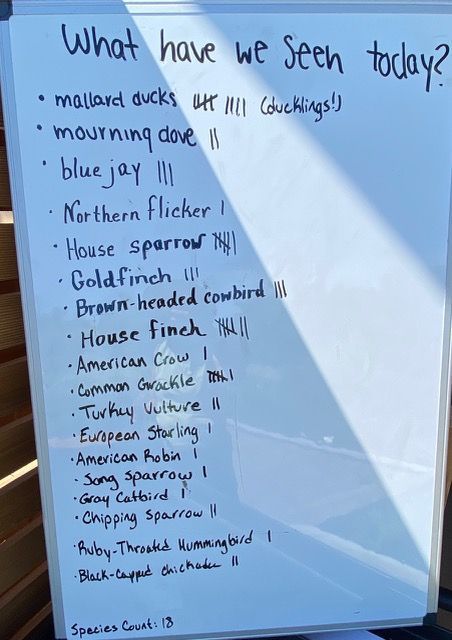 What have we Seen today?
• mallard ducks 卌 |||| (ducklings!)
• mourning dove ||
• blue jay |||
• Northern flicker |
• House sparrow 卌 |
• Goldfinch |||
• Brown-headed cowbird |||
• House finch 卌 ||
• American Crow |
• Common Grackle 卌 |
• Turkey Vulture ||
• European Starling |
• American Robin |
• Song Sparrow |
• Gray Catbird |
• Chipping Sparrow ||
• Ruby-Throated Hummingbird |
• Black-Capped Chickadee ||
Species Count: 18